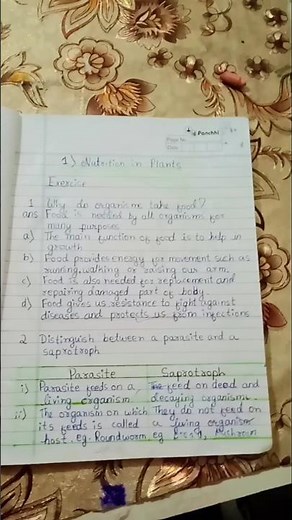 Panchhi
Page No.
Date
1) Nutrition in Plants
Exercise
1 Why do organisms take food?
ans Food is needed by all organisms for
many purposes
a) The main function of food is to help in
growth
b) Food provides energy for movement such as
running, walking or raising our arm.
c) Foot is also needed for replacement and
repairing damaged part of body
d) Food gives us resistance to fight against
diseases and protects us from infections
2 Distinguish between a parasite and a
saprotroph
Parasite Saprotroph
i) Parasite feeds on a feed on dead and
living organism decaying organism
ii) The organism on which They do not feed on
its feeds is called a living organism
host. eg. Roundworm eg.